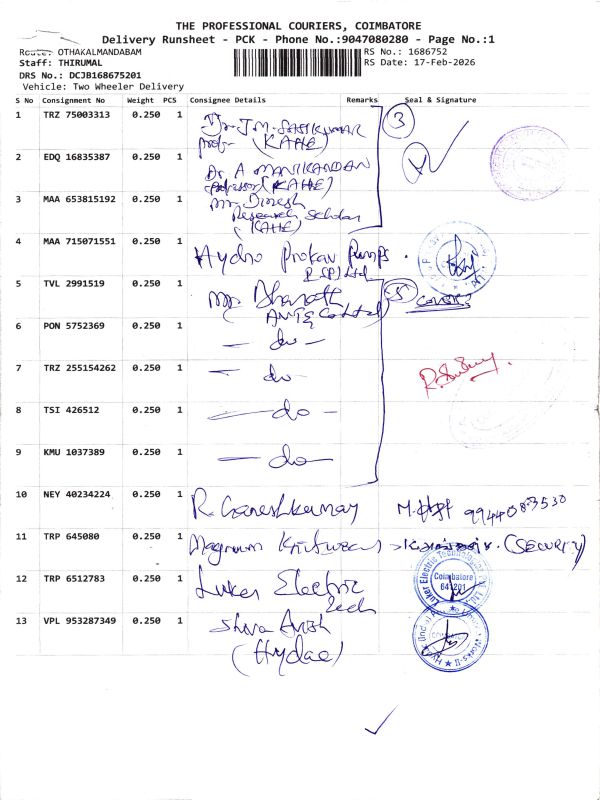 THE PROFESSIONAL COURIERS, COIMBATORE
Delivery Runsheet - PCK - Phone No.:9047080280 - Page No.:1
Route: OTHAKALMANDABAM
RS No.: 1686752
Staff: THIRUMAL
RS Date: 17-Feb-2026
DRS No.: DCJB168675201
Vehicle: Two Wheeler Delivery
S No Consignment No Weight PCS Consignee Details Remarks Seal & Signature
1 TRZ 75003313 0.250 1 Dr. J.M. SASIKUMAR
Prof- (KAHE)
3
2 EDQ 16835387 0.250 1 Dr. A MANIKANDAN
Professor (KAHE)
3 MAA 653815192 0.250 1 Mr. Dinesh
Research Scholar
(KAHE)
4 MAA 715071551 0.250 1 Hydro Prokav Pumps
(P) Ltd
5 TVL 2991519 0.250 1 Mr Bharath
5 COVERS
6 PON 5752369 0.250 1 - do -
7 TRZ 255154262 0.250 1 - do -
8 TSI 426512 0.250 1 - do -
9 KMU 1037389 0.250 1 - do -
10 NEY 40234224 0.250 1 R. Ganeshkumar
9944083530
11 TRP 645080 0.250 1 Magnum Knitwear
(SECURITY)
12 TRP 6512783 0.250 1 Luker Electric
Tech
Luker Electric Technologies Pvt. Ltd.
Coimbatore
641201
13 VPL 953287349 0.250 1 Shiva
(Hydac)